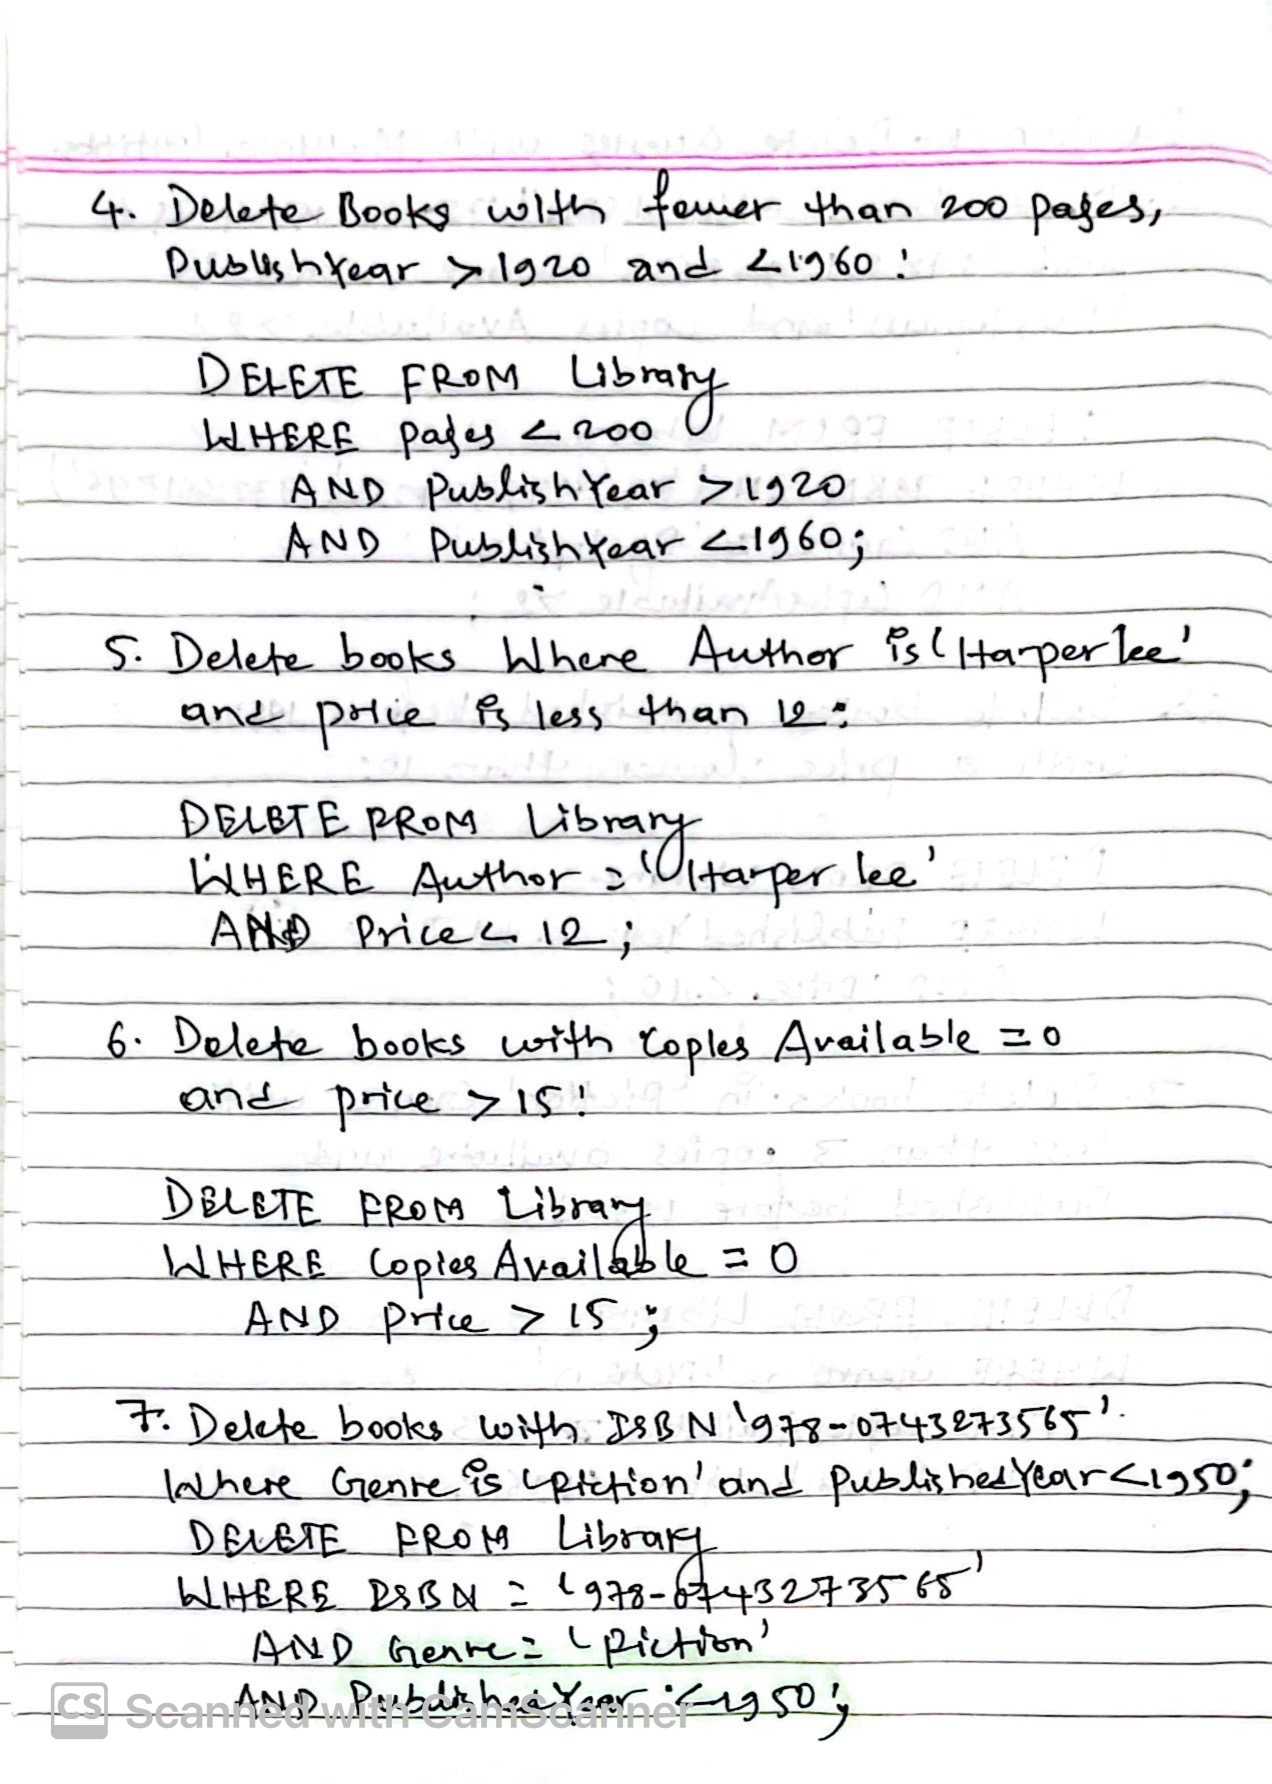 4. Delete Books with fewer than 200 pages,
PublishYear > 1920 and < 1960 :
DELETE FROM Library
WHERE pages < 200
AND PublishYear > 1920
AND PublishYear < 1960;
5. Delete books Where Author is 'Harper lee'
and price is less than 12:
DELETE FROM Library
WHERE Author = 'Harper lee'
AND Price < 12;
6. Delete books with Copies Available = 0
and price > 15:
DELETE FROM Library
WHERE Copies Available = 0
AND Price > 15;
7. Delete books with ISBN '978-0743273565'
Where Genre is 'Fiction' and PublishedYear < 1950;
DELETE FROM Library
WHERE ISBN = '978-0743273565'
AND Genre = 'Fiction'
AND PublishedYear < 1950;
CS Scanned with CamScanner